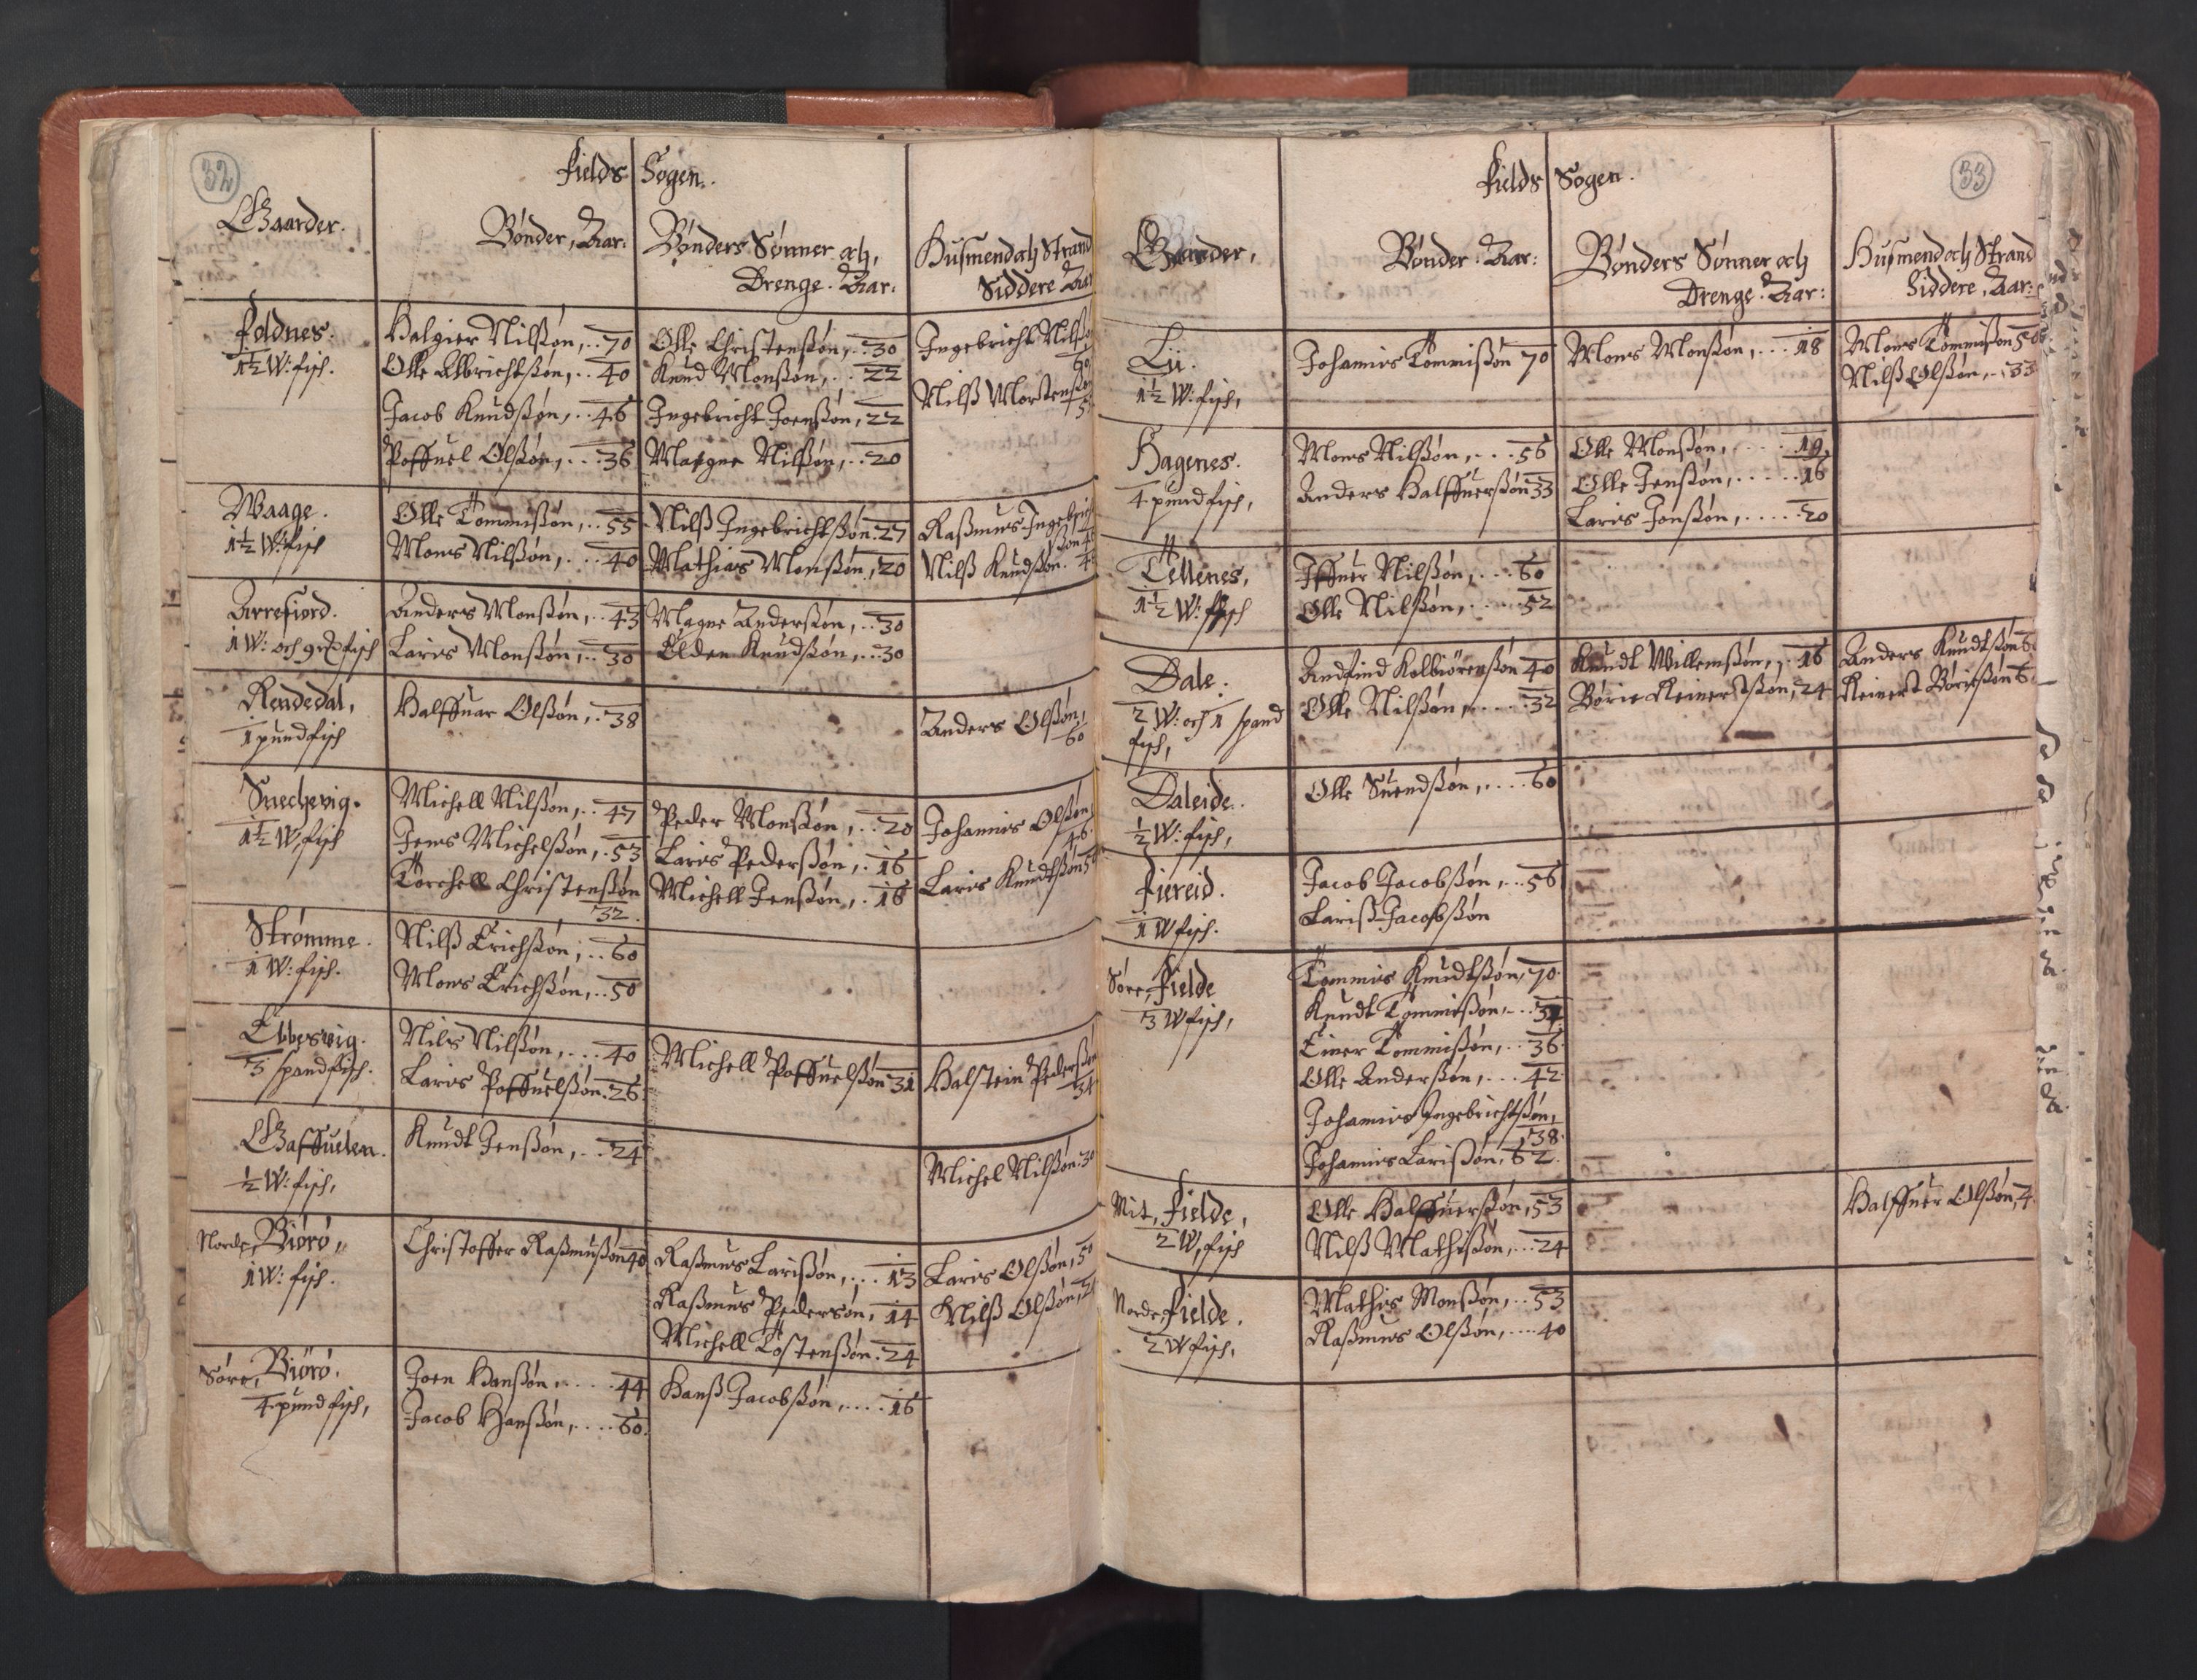 32
Fields Sogen.
Gaarder.
Bønder, Aar:
Bønders Sønner och,
Drenge. Aar:
Husmend och Strand
Siddere Aar
Foldnes.
1½ W: fisch.
Halgier Nilßøn, .. 70
Olle Albrichtßøn, .. 40
Jacob Knudßøn, .. 46
Poffuel Olßøn, ... 36
Olle Christenßøn, .. 30
Knud Monßøn, .. 22
Ingebricht Joenßøn, 22
Magne Nilßøn, .. 20
Ingebricht Nilßø
Nilß Mortenßøn
Waage.
1½ W: fisch
Olle Tommißøn, .. 55
Mons Nilßøn, ... 40
Nilß Ingebrichtßøn. 27
Mathias Monßøn, 20
Raßmus Ingebrich
ßøn 4
Nilß Knudßøn. 4
Arrefiord.
1 W: och 9 fisch
Anders Monßøn, .. 43
Laris Monßøn, .. 30
Magne Anderßøn, .. 30
Elden Knudßøn, .. 30
Rendedal,
1 pund fisch
Halffuar Olßøn, . 38
Anders Olßøn,
60
Snechevig.
1½ W, fisch
Michell Nilßøn, .. 47
Jens Michelßøn, . 53
Torchell Christenßøn
32.
Peder Monßøn, .. 20
Laris Pederßøn, . 16
Michell Jenßøn, . 16
Johannis Olßøn
46.
Laris Knudtßøn 5
Strømme.
1 W: fisch.
Nilß Erichßøn, .. 60
Mons Erichßøn, .. 50
Ebbesvig.
3 spand fisch.
Nils Nilßøn, ... 40
Laris Poffuelßøn. 26.
Michell Poffuelßøn 31
Halstein Pederßøn
34
Gaffuelen.
½ W: fisch,
Knudt Jenßøn, .. 24
Michel Nilßøn. 30
Norde, Biørø,
1 W: fisch.
Christoffer Raßmußøn 40
Raßmus Larißøn, .. 13
Raßmus Pedersøn, 14
Michell Tostenßøn. 24
Laris Olßøn, 5
Nilß Olßøn, 2
Søre, Biørø.
4. pund fisch,
Joen Hanßøn, .... 44
Jacob Hanßøn, .... 60.
Hanß Jacobßøn, .... 16
33
Fields Sogen.
Gaarder,
Bønder. Aar:
Bønders Sønner och
Drenge. Aar:
Husmend och Strand
Siddere, Aar:
Lii.
1½ W: fisch,
Johannis Tommißøn 70
Mons Monßøn, ... 18
Mons Tommißøn 50
Nilß Olßøn, .. 33
Hagenes.
4. pund fisch,
Mons Nilßøn, ... 56
Anders Halffuerßøn 33
Olle Monßøn, .... 19.
Olle Jenßøn, ..... 16
Laris Jonßøn, .... 20
Tellenes,
1½ W: fisch
Iffuer Nilßøn, ... 60
Olle Nilßøn, .... 52
Dale.
2 W: och 1 spand
fisch,
Andfind Kolbiørenßøn 40
Olle Nilßøn, .... 32
Knudt Willemßøn, . 16
Børie Reinertßøn, 24
Anders Knudtßøn 6
Reinert Børießøn 6
Daleide.
½ W: fisch,
Olle Suendßøn, .... 60
Fiereid.
1 W fisch.
Jacob Jacobßøn, .. 56
Lariß Jacobßøn
Søre, Fielde
3 W fisch,
Tommis Knudtßøn, 70.
Knudt Tommißøn, .. 34
Einer Tommißøn, .. 36.
Olle Anderßøn, ... 42.
Johannis Ingebrichtßøn,
38.
Johannis Larißøn, 62.
Mit, Fielde,
2 W, fisch
Olle Halffuerßøn, 53
Nilß Mathißøn, ... 24
Halffuer Olßøn, 4.
Norde Fielde.
2 W fisch,
Mathis Monßøn, .. 53
Raßmus Olßøn, .... 40